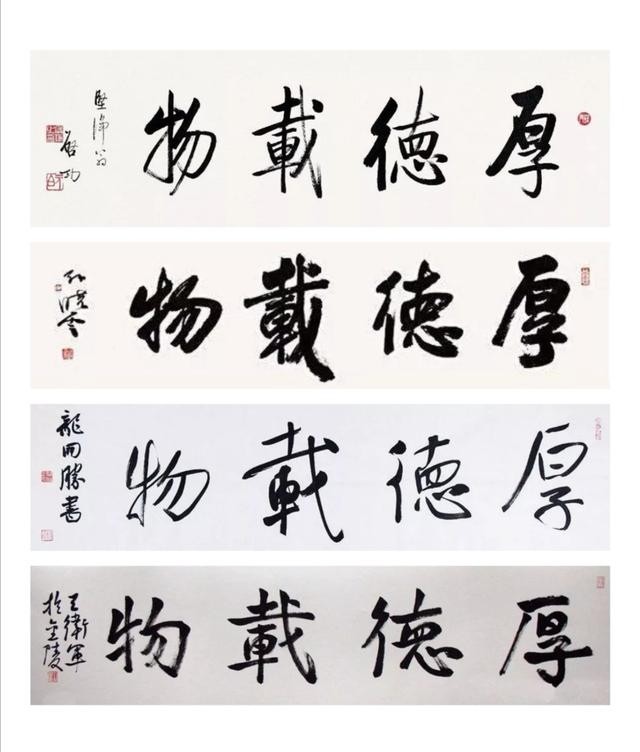 厚德載物
堅淨翁
啓功
厚德載物
孫曉雲
厚德載物
龍開勝書
厚德載物
王衛軍
於金陵